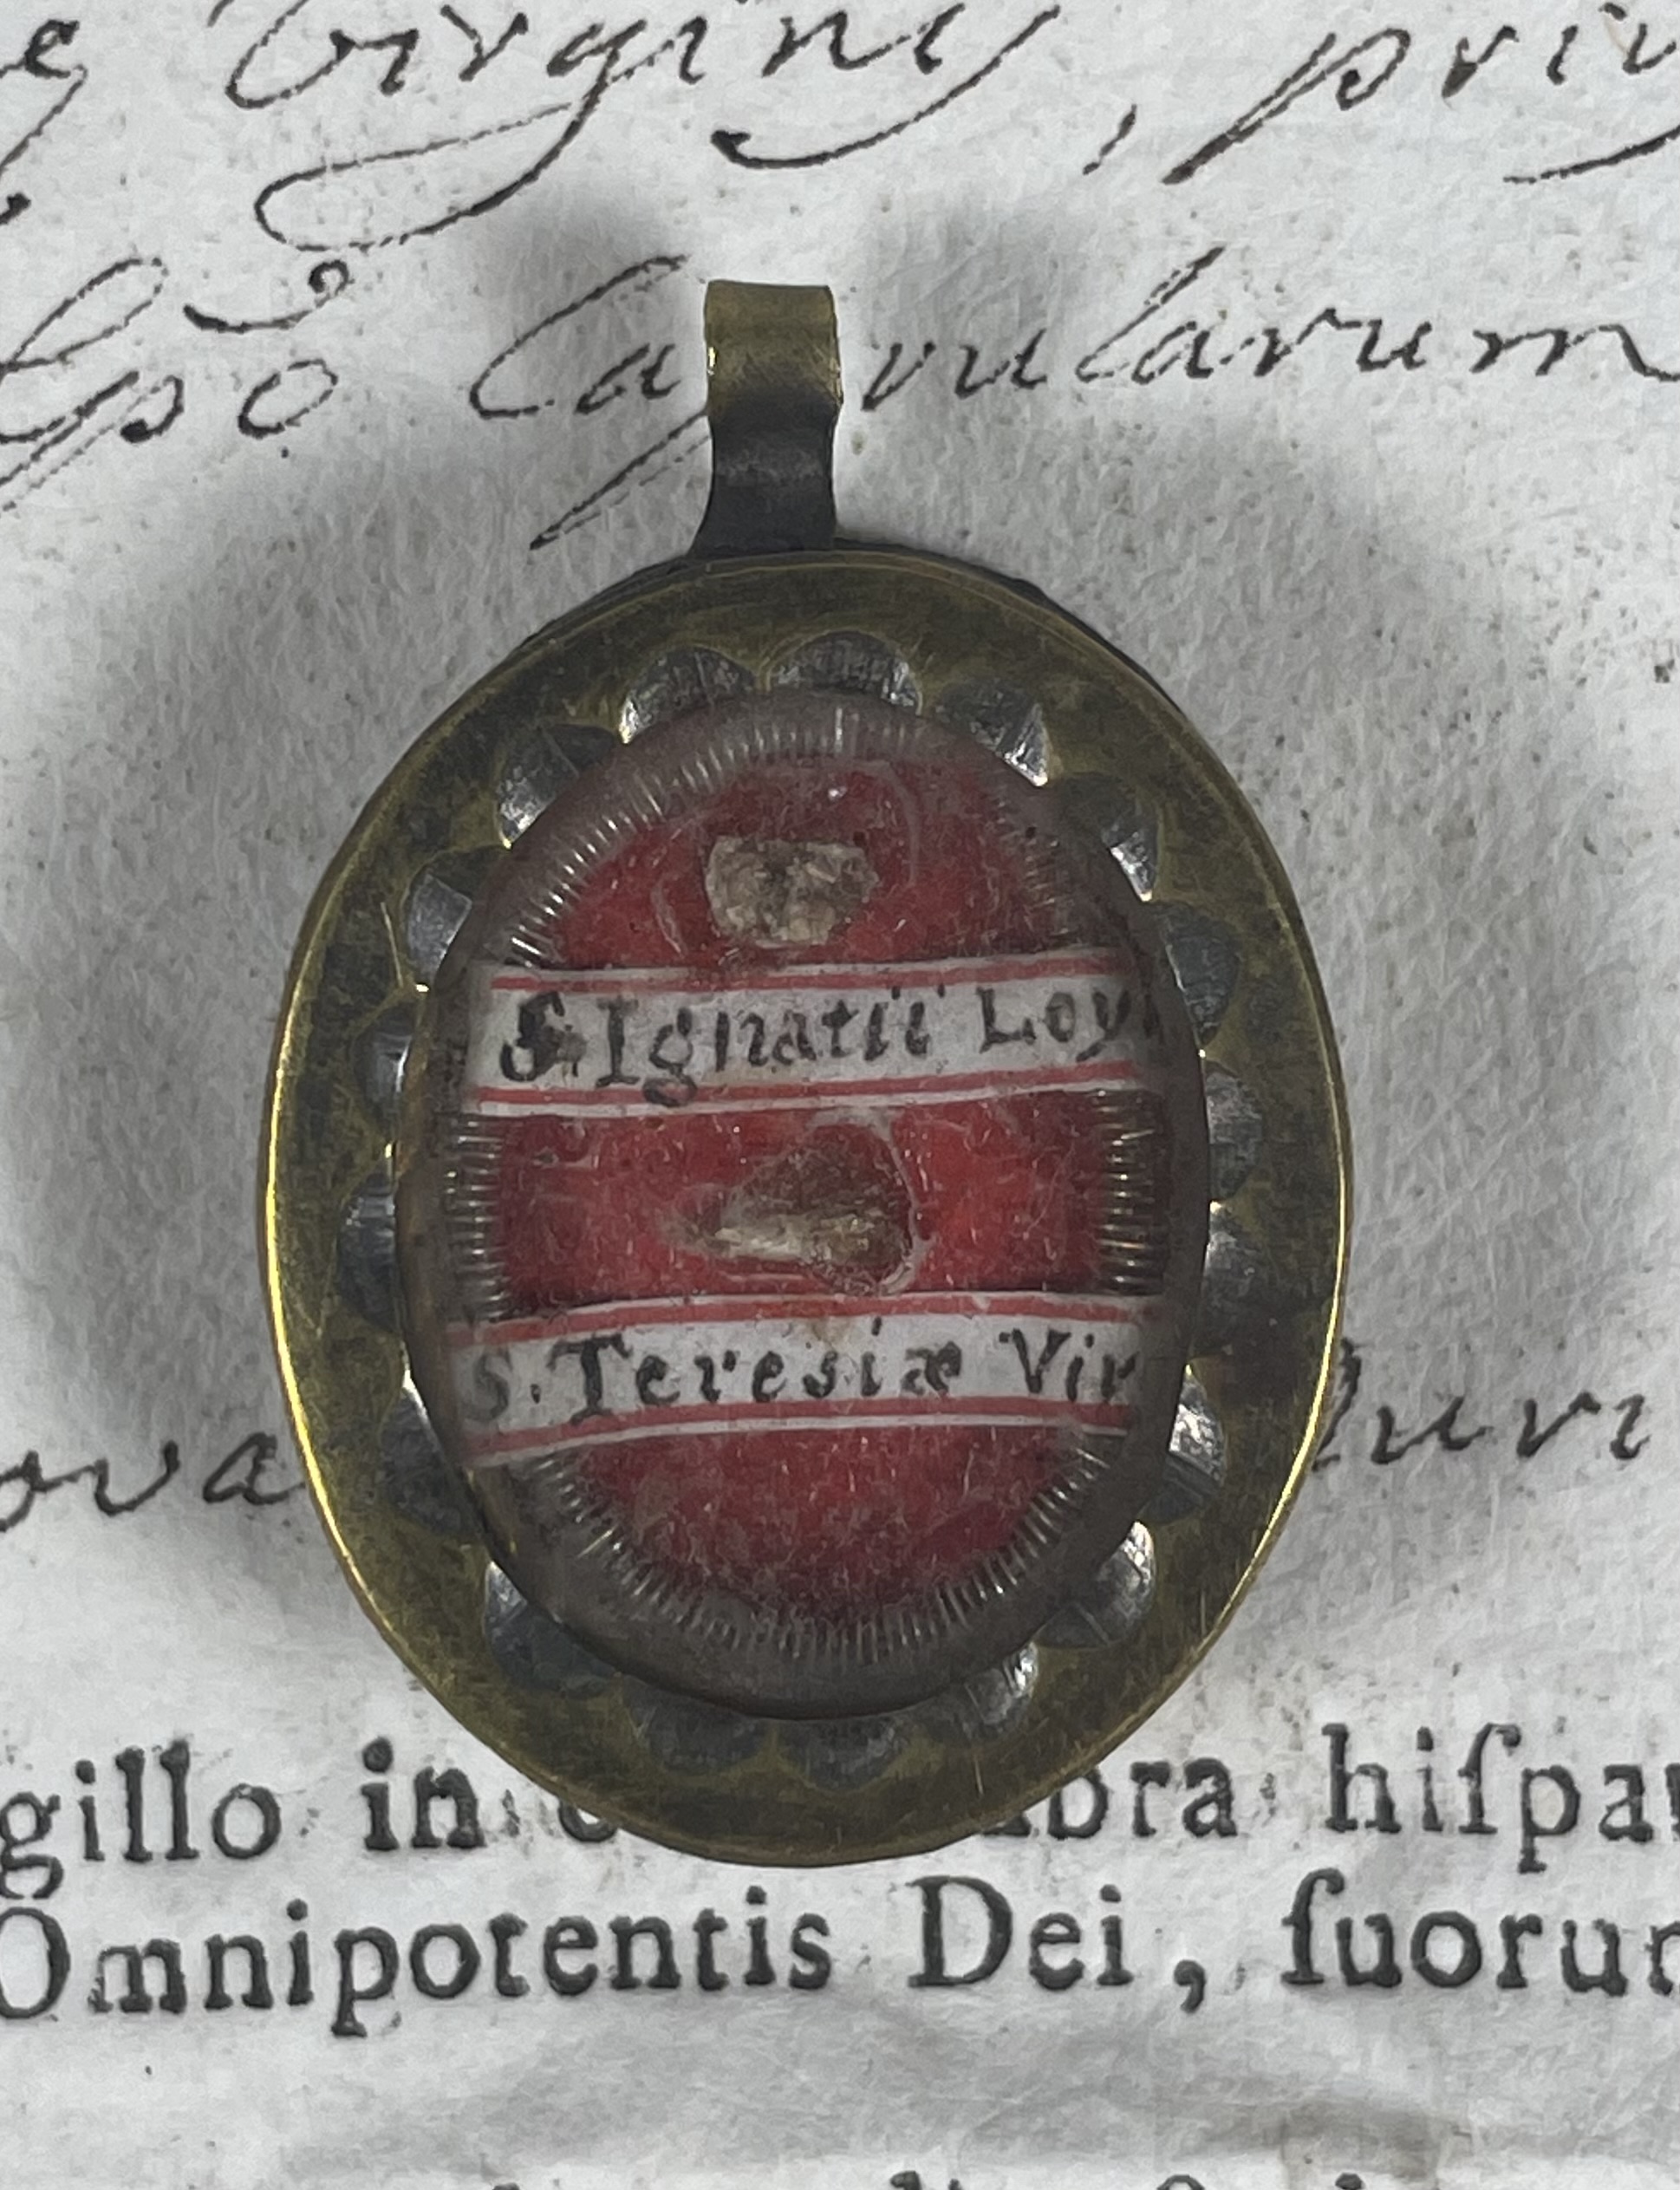 Virgini, priv
lpo Capsularum
S. Ignatii Loy
S. Teresiæ Vir
ova
gillo in bra hiſpan
Omnipotentis Dei, ſuorum